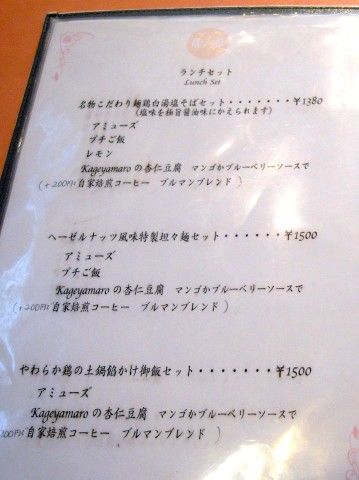 ランチセット
Lunch Set
名物こだわり麺鶏白湯塩そばセット・・・・・・・¥1380
(塩味を極旨醤油味にかえられます)
アミューズ
プチご飯
レモン
Kageyamaroの杏仁豆腐 マンゴかブルーベリーソースで
(+200円に自家焙煎コーヒー ブルマンブレンド)
ヘーゼルナッツ風味特製坦々麺セット・・・・・・¥1500
アミューズ
プチご飯
Kageyamaroの杏仁豆腐 マンゴかブルーベリーソースで
(+200円に自家焙煎コーヒー ブルマンブレンド)
やわらか鶏の土鍋餡かけ御飯セット・・・・・・・¥1500
アミューズ
Kageyamaroの杏仁豆腐 マンゴかブルーベリーソースで
200円に自家焙煎コーヒー ブルマンブレンド)